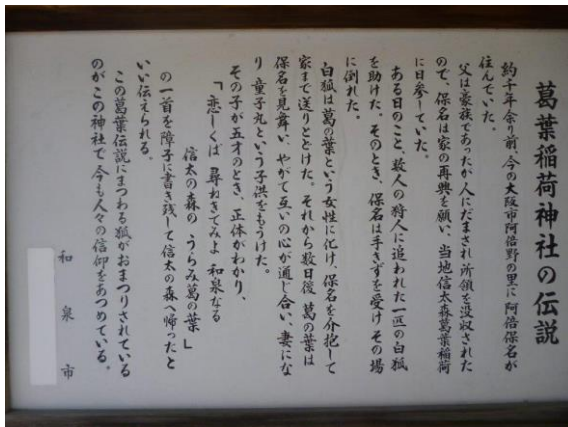 葛葉稲荷神社の伝説
約千年余り前、今の大阪市阿倍野の里に阿倍保名が
住んでいた。
父は豪族であったが人にだまされ所領を没収された
ので、保名は家の再興を願い、当地信太森葛葉稲荷
に日参していた。
ある日のこと、数人の狩人に追われた一匹の白狐
を助けた。そのとき、保名は手きずを受けその場
に倒れた。
白狐は葛の葉という女性に化け、保名を介抱して
家まで送りとどけた。それから数日後、葛の葉は
保名を見舞い、やがて互いの心が通じ合い、妻にな
り童子丸という子供をもうけた。
その子が五才のとき、正体がわかり、
「恋しくば 尋ねきてみよ 和泉なる
信太の森の うらみ葛の葉」
の一首を障子に書き残して信太の森へ帰ったと
いい伝えられる。
この葛葉伝説にまつわる狐がおまつりされている
のがこの神社で今も人々の信仰をあつめている。
和泉市